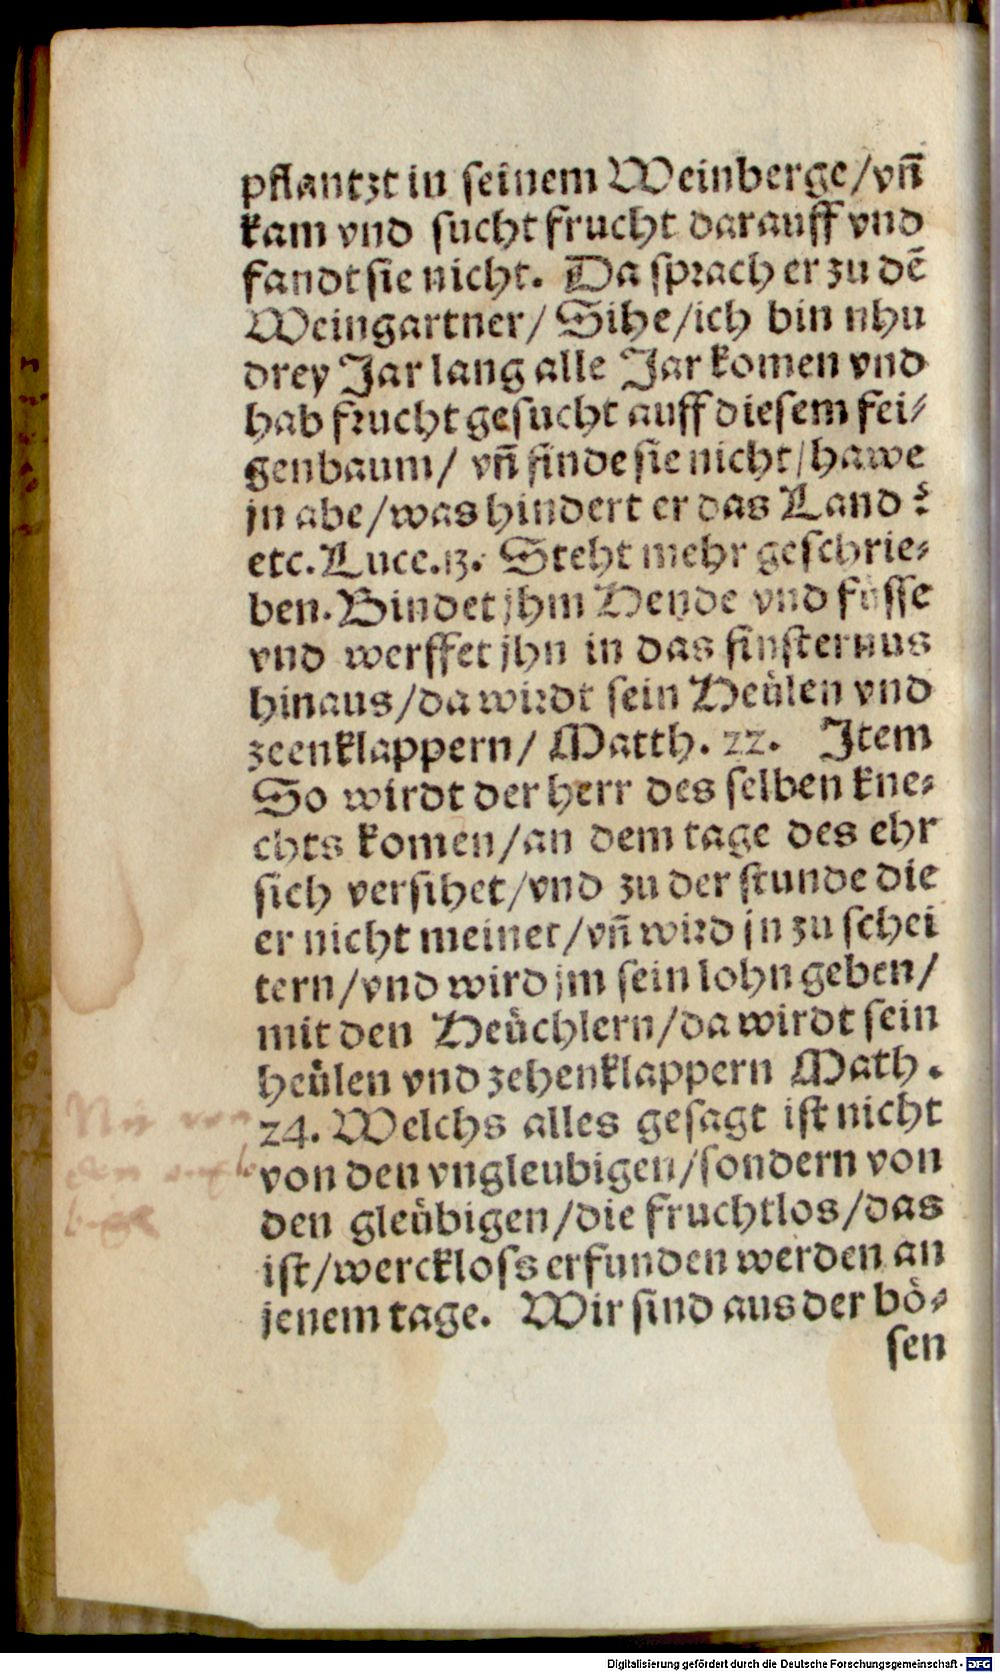 pflantzt in seinem Weinberge/vñ
kam vnd sucht frucht darauff vnd
fandt sie nicht. Da sprach er zu dē
Weingartner/ Sihe/ich bin nhu
drey Jar lang alle Jar komen vnd
hab frucht gesucht auff diesem fei⸗
genbaum/ vñ finde sie nicht/hawe
jn abe/was hindert er das Land?
etc. Luce.13. Steht mehr geschrie⸗
ben. Bindet jhm Hende vnd füsse
vnd werffet jhn in das finsternus
hinaus/da wirdt sein Heülen vnd
zeenklappern/ Matth. 22. Item
So wirdt der herr des selben kne⸗
chts komen/an dem tage des ehr
sich versihet/vnd zu der stunde die
er nicht meinet/vñ wird jn zu schei
tern/vnd wird jm sein lohn geben/
mit den Heüchlern/da wirdt sein
heülen vnd zehenklappern Math.
24. Welchs alles gesagt ist nicht
von den vngleubigen/sondern von
den gleübigen/die fruchtlos/das
ist/werckloss erfunden werden an
jenem tage. Wir sind aus der bö⸗
sen
Digitalisierung gefördert durch die Deutsche Forschungsgemeinschaft - DFG